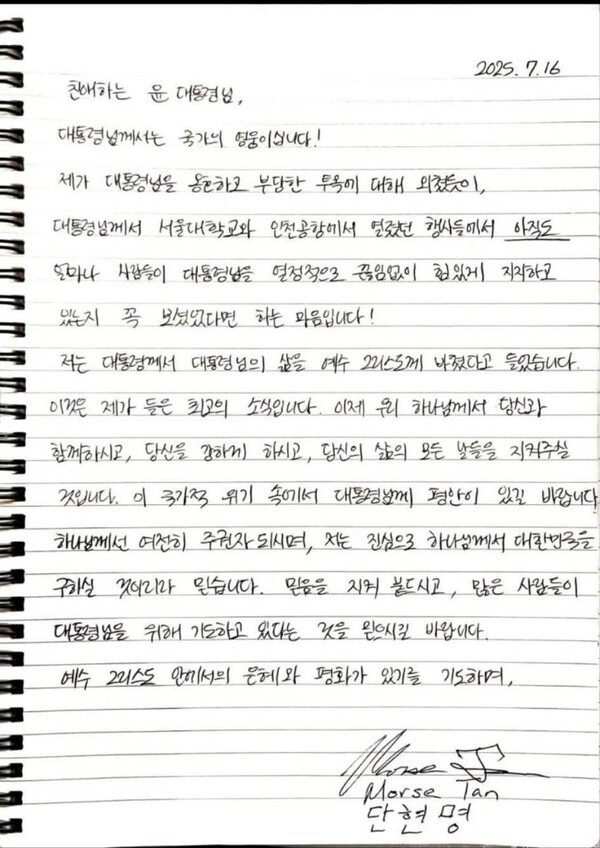 2025. 7. 16
친애하는 윤 대통령님,
대통령님께서는 국가의 영웅이십니다!
제가 대통령님을 옹호하고 부당한 투옥에 대해 외쳤듯이,
대통령님께서 서울대학교와 인천공항에서 열렸던 행사들에서 아직도
얼마나 사람들이 대통령님을 열정적으로 끊임없이 힘있게 지지하고
있는지 꼭 보셨었다면 하는 마음입니다!
저는 대통령께서 대통령님의 삶을 예수 그리스도께 바쳤다고 들었습니다.
이것은 제가 들은 최고의 소식입니다. 이제 우리 하나님께서 당신과
함께하시고, 당신을 강하게 하시고, 당신의 삶의 모든 날들을 지켜주실
것입니다. 이 국가적 위기 속에서 대통령님께 평안이 있길 바랍니다
하나님께선 여전히 주권자 되시며, 저는 진심으로 하나님께서 대한민국을
구하실 것이리라 믿습니다. 믿음을 지켜 붙드시고, 많은 사람들이
대통령님을 위해 기도하고 있다는 것을 믿으시길 바랍니다.
예수 그리스도 안에서의 은혜와 평화가 있기를 기도하며,
Morse T
Morse Tan
단현명